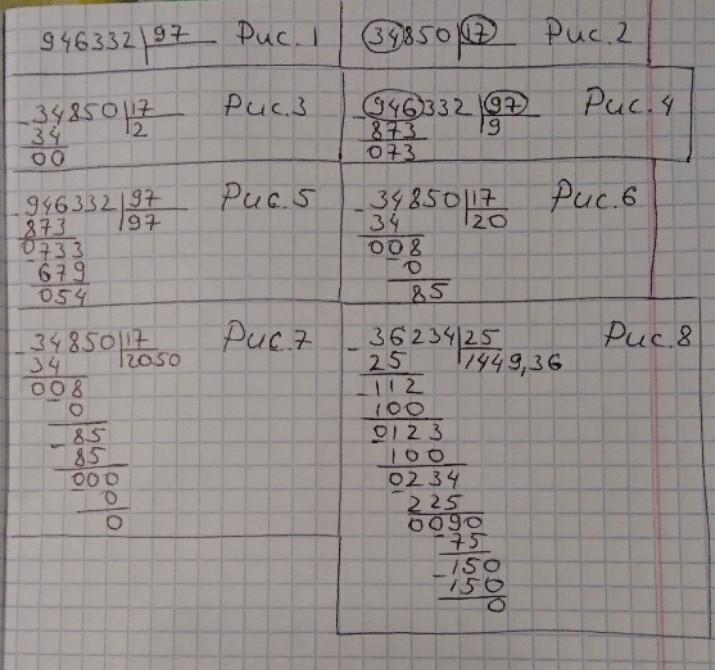 946332 97 Рис. 1
34850 17 Рис. 2
-34850 17 Рис. 3
34 2
00
-946332 97 Рис. 4
873 9
073
-946332 97 Рис. 5
873 97
-0733
679
054
-34850 17 Рис. 6
34 20
-008
0
85
-34850 17 Рис. 7
34 2050
-008
0
-85
85
-000
0
0
-36234 25 Рис. 8
25 1449,36
-112
100
-0123
100
-0234
225
0090
-75
-150
150
0